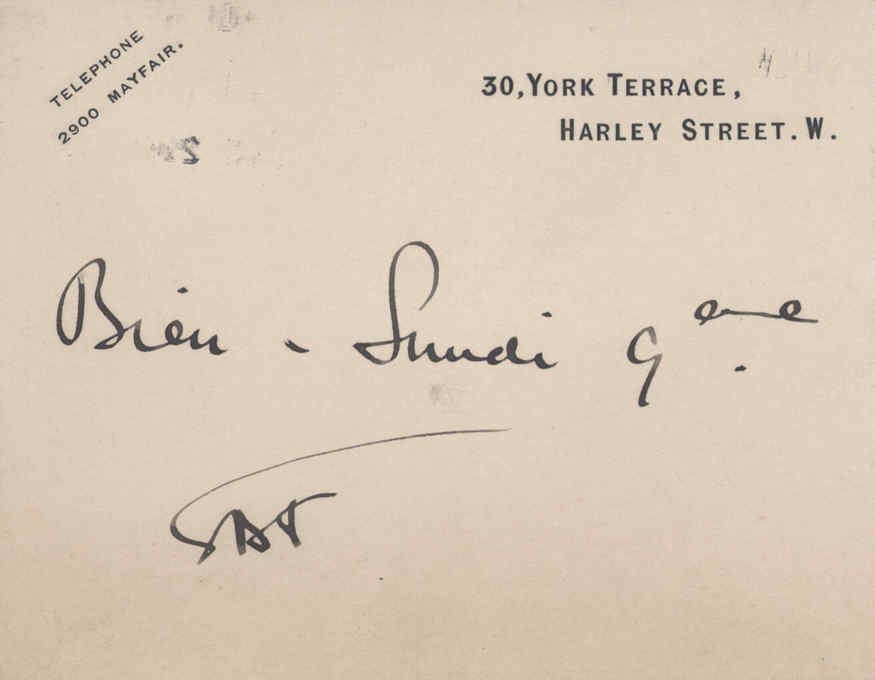 TELEPHONE
2900 MAYFAIR.
30, YORK TERRACE,
HARLEY STREET. W.
Bien - Lundi 9 eme.